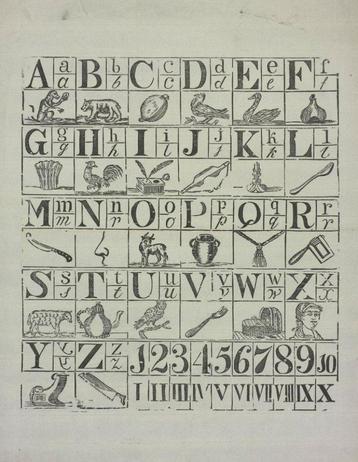 A a a B b b C c c D d d E e e F f f
G g g H h h I i i J j j K k k L l l
M m m N n n O o o P p p Q q q R r r
S s s T t t U u u V v v W w w X x x
Y y y Z z z 1 2 3 4 5 6 7 8 9 10
I II III IV V VI VII VIII IX X